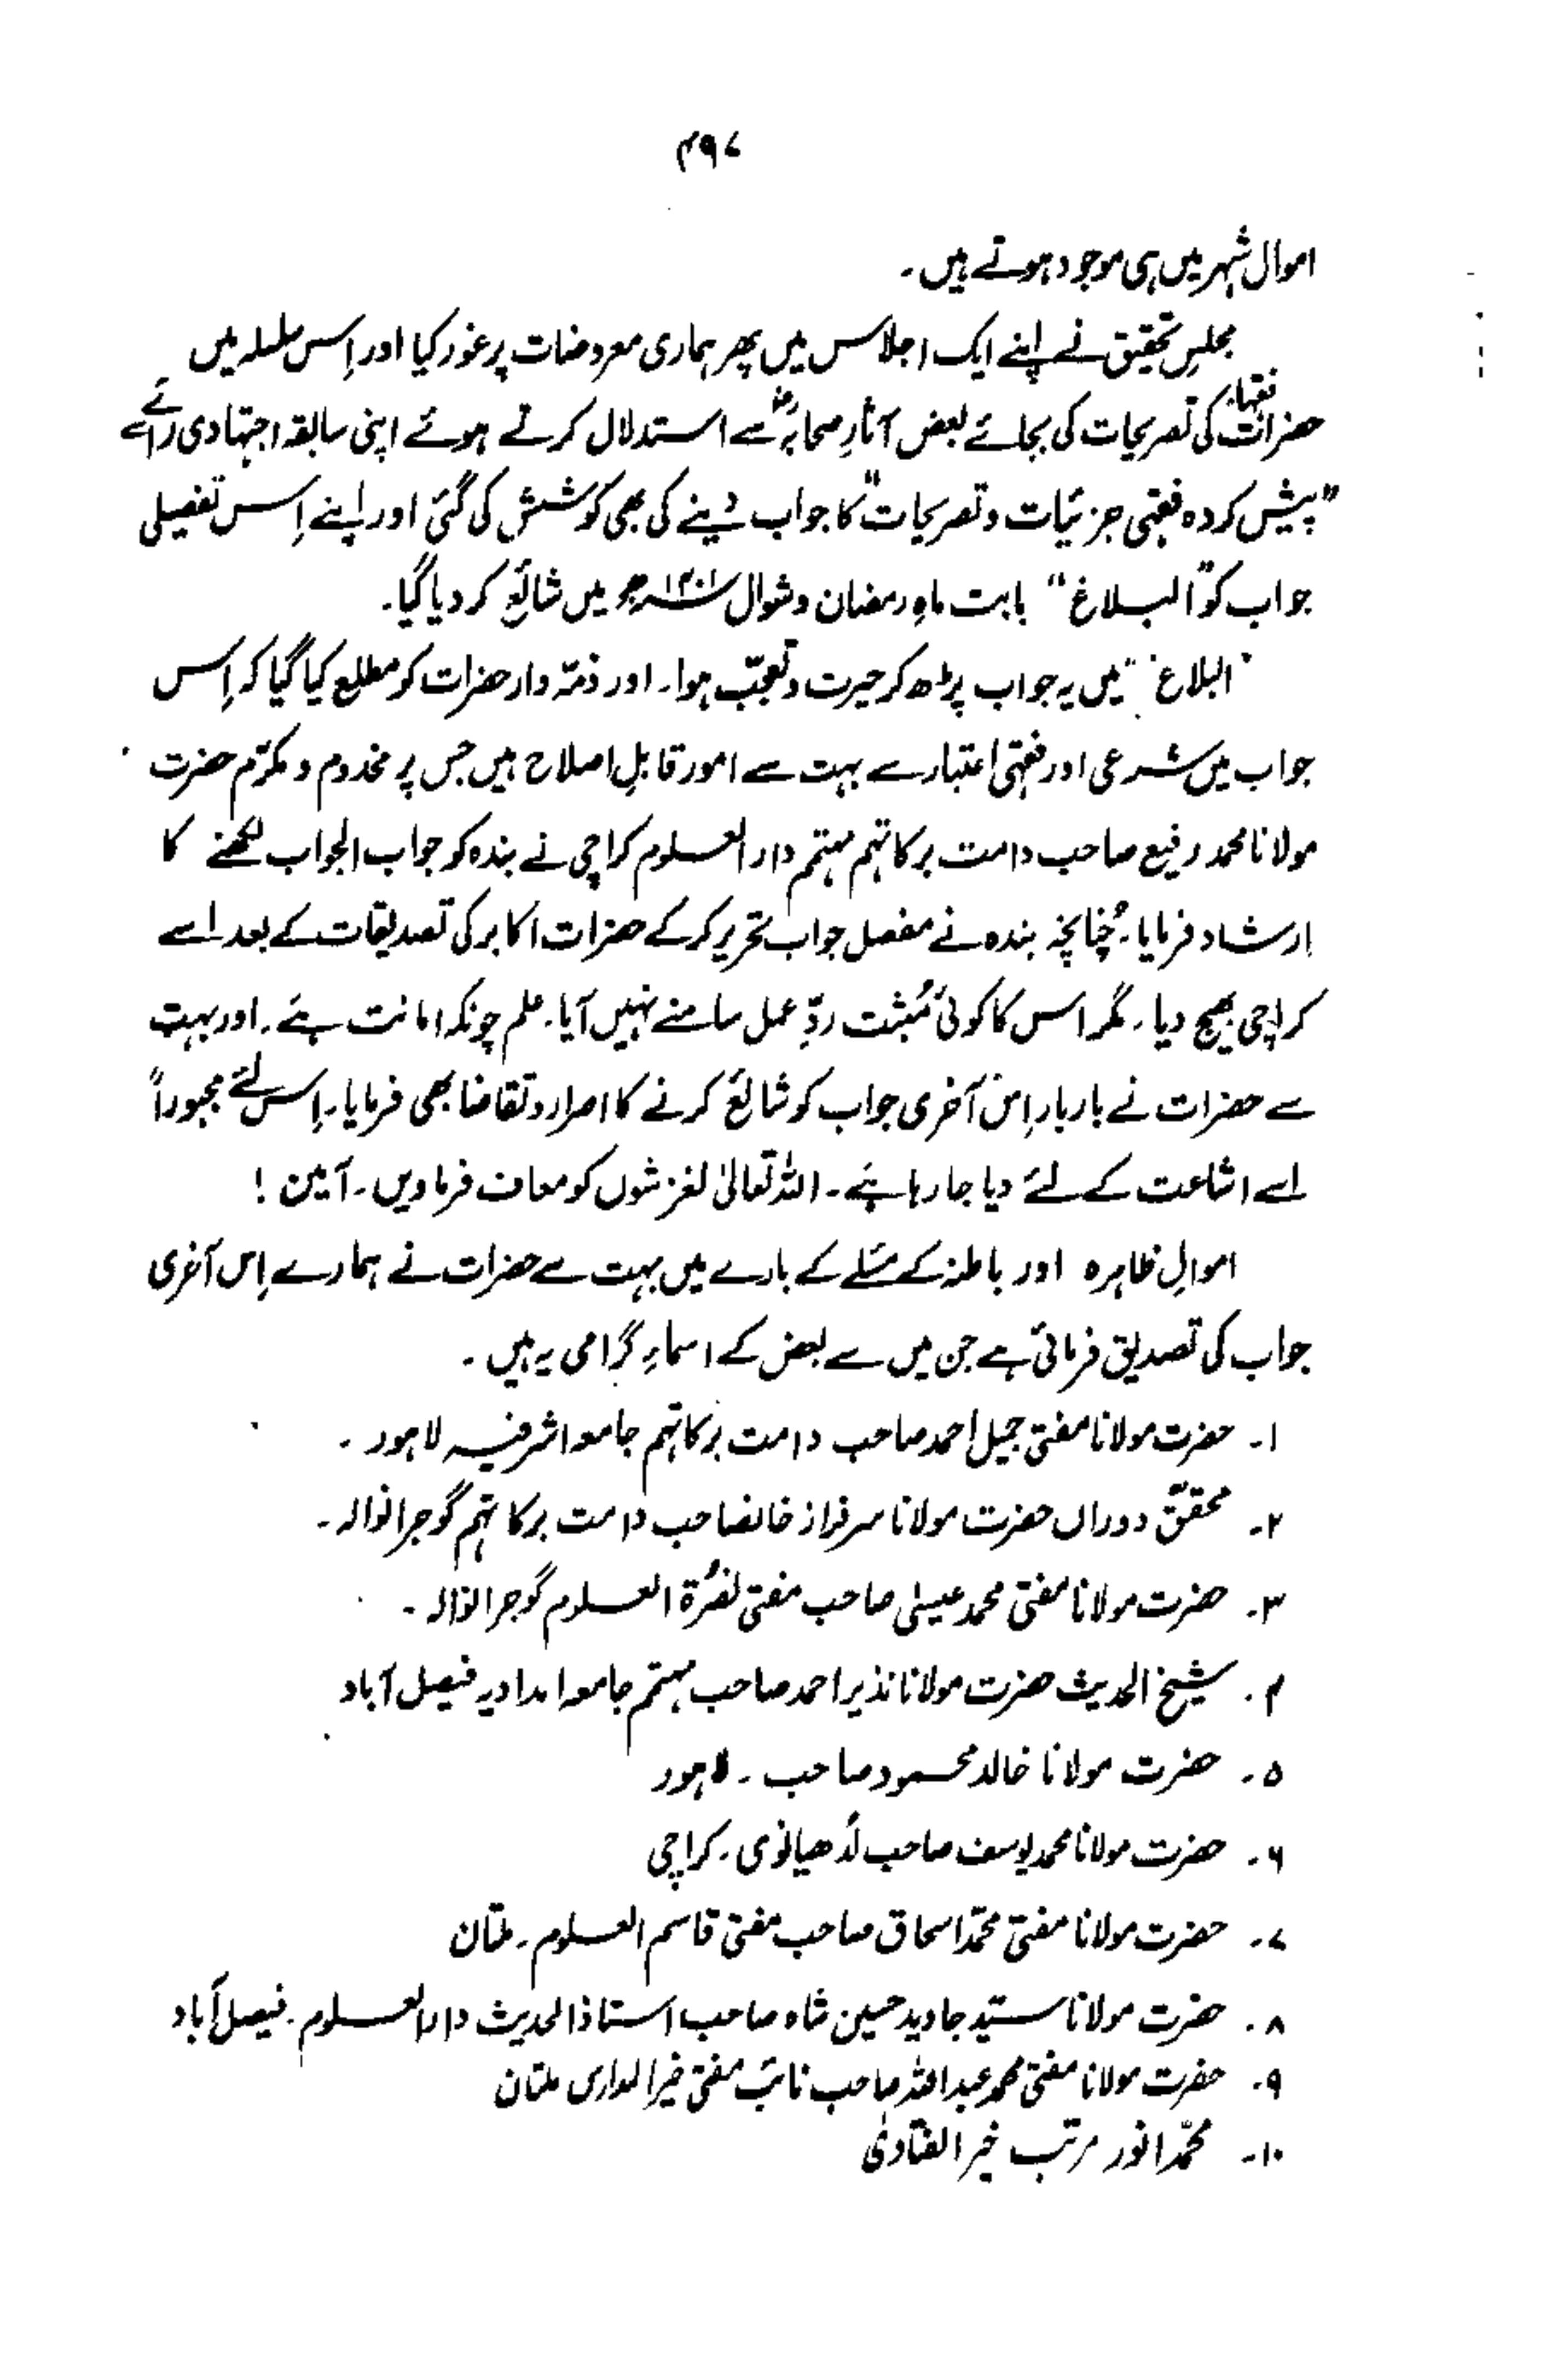 ۴۹۷
اموال شہر میں ہی موجود ہوتے ہیں۔
مجلسِ تحقیق نے اپنے ایک اجلاس میں پھر ہماری معروضات پر غور کیا اور اِس سلسلہ میں
حضرات فقہاء کی تصریحات کی بجائے بعض آثارِ صحابہؓ سے استدلال کرتے ہوئے اپنی سابقہ اجتہادی رائے سے
”پیش کردہ فقہی جزئیات و تصریحات“ کا جواب دینے کی بھی کوشش کی گئی اور اپنے اِس تفصیلی
جواب کو ”البلاغ“ بابت ماہِ رمضان و شوال ۱۴۰۱ھ میں شائع کر دیا گیا۔
”البلاغ“ میں یہ جواب پڑھ کر حیرت و تعجّب ہوا۔ اور ذمّہ دار حضرات کو مطلع کیا گیا کہ اِس
جواب میں شرعی اور فقہی اعتبار سے بہت سے امور قابلِ اصلاح ہیں جس پر مخدوم و مکرّم حضرت
مولانا محمد رفیع صاحب دامت برکاتہم مہتمم دارالعلوم کراچی نے بندہ کو جواب الجواب لکھنے کا
ارشاد فرمایا۔ چُنانچہ بندہ نے مفصل جواب تحریر کر کے حضرات اکابر کی تصدیقات کے بعد اسے
کراچی بھیج دیا۔ مگر اس کا کوئی مُثبت ردِّ عمل سامنے نہیں آیا۔ علم چونکہ امانت ہے۔ اور بہت
سے حضرات نے بار بار اِس آخری جواب کو شائع کرنے کا اصرار و تقاضا بھی فرمایا۔ اِس لئے مجبوراً
اسے اشاعت کے لئے دیا جا رہا ہے۔ اللہ تعالیٰ لغزشوں کو معاف فرماویں۔ آمین !
اموالِ ظاہرہ اور باطنہ کے مسئلے کے بارے میں بہت سے حضرات نے ہمارے اِس آخری
جواب کی تصدیق فرمائی ہے جن میں سے بعض کے اسماءِ گرامی یہ ہیں۔
۱۔ حضرت مولانا مفتی جمیل احمد صاحب دامت برکاتہم جامعہ اشرفیہ لاہور۔
۲۔ محققِ دوراں حضرت مولانا سرفراز خانصاحب دامت برکاتہم گوجرانوالہ۔
۳۔ حضرت مولانا مفتی محمد عیسیٰ صاحب مفتی نصُرۃ العلوم گوجرانوالہ۔
۴۔ شیخ الحدیث حضرت مولانا نذیر احمد صاحب مہتمم جامعہ امدادیہ فیصل آباد
۵۔ حضرت مولانا خالد محمود صاحب۔ لاہور
۶۔ حضرت مولانا محمد یوسف صاحب لُدھیانوی۔ کراچی
۷۔ حضرت مولانا مفتی محمّد اسحاق صاحب مفتی قاسم العلوم۔ ملتان
۸۔ حضرت مولانا سیّد جاوید حسین شاہ صاحب استاذ الحدیث دارالعلوم۔ فیصل آباد
۹۔ حضرت مولانا مفتی محمد عبداللہ صاحب نائب مفتی خیر المدارس ملتان
۱۰۔ محمّد انور مرتب خیر الفتاویٰ